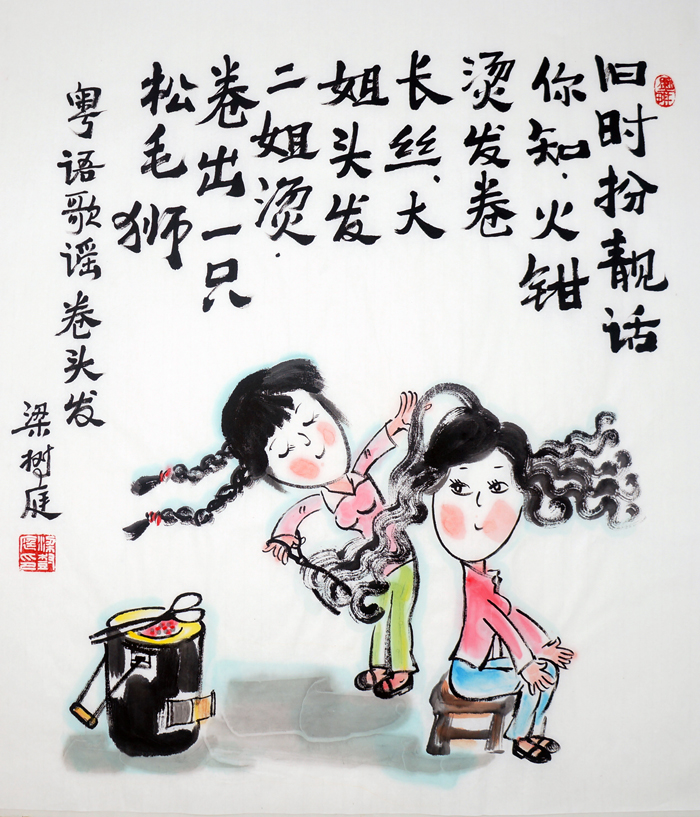 旧时扮靓话
你知.火钳
烫发卷
长丝.大
姐头发
二姐烫.
卷出一只
松毛狮
粤语歌谣卷头发
梁树庭